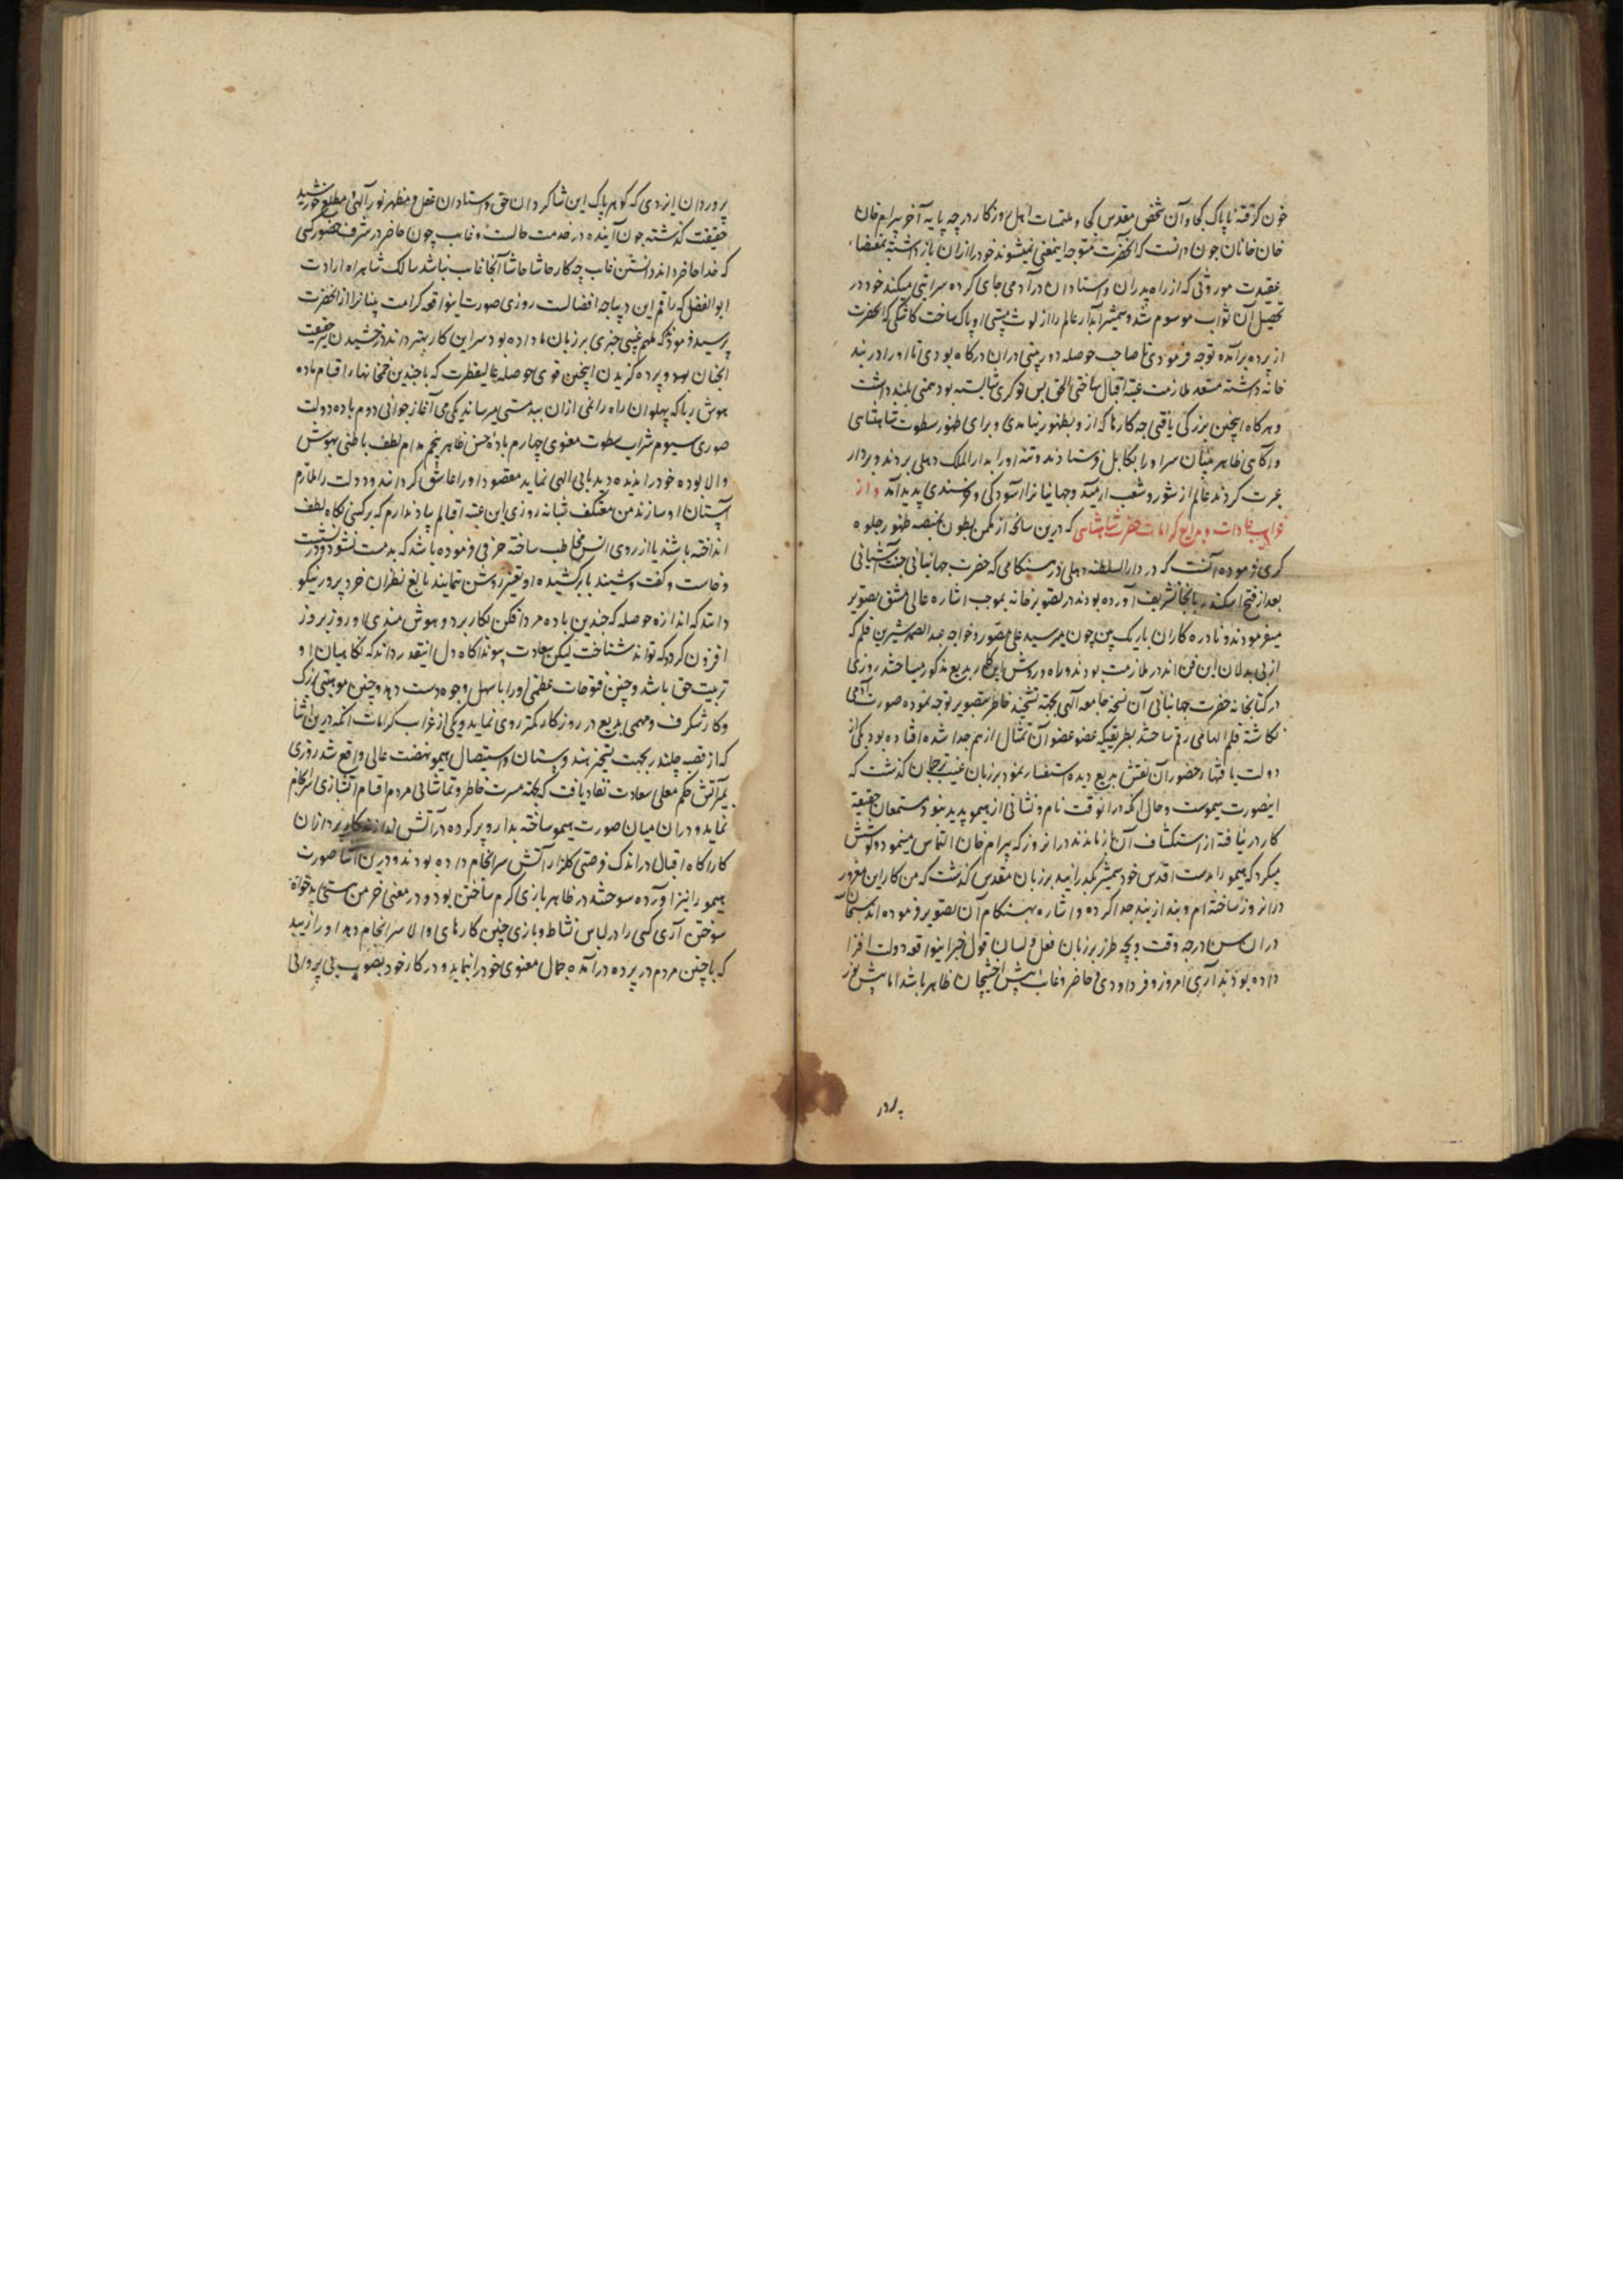 خون کرفته ناپاک کجا و آن شخص مقدس کجا و ملتمسات اهل روزکار در چه پایه آخر بیرام خان
خان خانان چون دانست که آنحضرت متوجه اینمعنی نمیشوند خود را ازان باز داشته بمقتضاء
عقیدت موروثی که از راه پدران و استادان در آدمی جای کرده سرایتی میکند خود در
تحصیل آن ثواب موسوم شد و بشمشیر آبدار عالم را از لوث هستی او پاک ساخت کاشکی که آنحضرت
از پرده برآمده توجه فرمودی تا صاحب حوصله دوربینی دران درکاه بودی تا او را در بند
خانه داشته مستعد ملازمت عتبه اقبال ساختی الحق بس نوکری شایسته بود همتی بلند داشت
و هرکاه اینچنین بزرکی یافتی چه کارها که از و بظهور نیامدی و برای ظهور سطوت شاهنشاهی
و آکاهی ظاهر بینان سر او را بکابل فرستادند و تنه او را بدار الملک دهلی بردند و بردار
عبرت کردند عالم از شور و شغب ارمید و جهانیان را آسودکی و خرسندی پدید آمد و از
غرایب عادات و بدایع کرامات حضرت شاهنشاهی که درین سانحه از مکمن بطون بمنصه ظهور جلوه
کری فرموده آنست که در دار السلطنه دهلی در هنکامی که حضرت جهانبانی جنت آشیانی
بعد از فتح اسکندر بانجا تشریف آورده بودند در تصویر خانه بموجب اشاره عالی مشق تصویر
میفرمودند و نادره کاران باریک بین چون میر سید علی مصور و خواجه عبد الصمد شیرین قلم که
از بی بدلان این فن اند در ملازمت بودند و راه و روش این کار بدیع مذکور میساختند روزی
در کتابخانه حضرت جهانبانی آن نسخه جامعه الهی بجهته تشحیذ خاطر بتصویر توجه نموده صورت آدمی
نکاشته قلم الهامی رقم ساختند بطریقیکه عضو عضو آن تمثال از هم جدا شده افتاده بود یکی از
دولت یافتهاء حضور آن نقش بدیع دیده استفسار نمود بر زبان غیب ترجمان کذشت که
اینصورت هیموست و حال آنکه درانوقت نام و نشانی از هیمو پدید نبود مستمعان حقیقة
کار در نیافته از استکشاف آن باز ماندند درانروز که بیرام خان التماس مینمود و کوشش
میکرد که هیمو را بدست اقدس خود بشمشیر بکذرانید بر زبان مقدس کذشت که من کار این مغرور
درانروز ساخته ام و بند از بند جدا کرده و اشاره بهنکام آن تصویر فرموده اند سبحان الله
دران سن در چه وقت و بچه طرز بر زبان فعل و لسان قول خبر اینواقعه دولت افزا
داده بودند آری امروز و فردا و دی حاضر و غایب پیش ظاهر باشد اما پیش نور
پرور
پروردان ایزدی که کوهر پاک این شاکردان حق و استادان عقل و مظهر نور الهی و مطلع خورشید
حقیقت کذشته چون آینده در خدمت حالست و غایب چون حاضر در شرف حضور کسی
که خدا حاضر داند دانستن غایب چه کار حاشا حاشا آنجا غایب نباشد سالک شاهراه ارادت
ابو الفضل که راقم این دیباجه افضالست روزی صورت اینواقعه کرامت پیرا از آنحضرت
پرسید فرمودند که ملهم غیبی خبری بر زبان ما داده بود سر این کار بهتر داند درخشیدن حقیقت
آنچنان بود و پرده کزیدن اینچنین قوی حوصله عالیفطرت که با چندین خمخانهاء اقسام باده
هوش ربا که پهلوانان راه را غمی ازان ببد مستی میرساند یکی می آغاز جوانی دوم باده دولت
صوری سیوم شراب سطوت معنوی چهارم باده حسن ظاهر پنجم مدام لطف باطنی بهوش
والا بوده خود را بدیده دیده بانی الهی نماید مقصود او را عاشق کرداند و دولت را ملازم
آستان او سازند من معتکف شبانه روزی این عتبه اقبالم یاد ندارم که بر کسی نکاه لطف
انداخته باشند یا از روی انس مخاطب ساخته حرفی فرموده باشد که بدمست نشود و در نشست
و خاست و کفت و شنید یا برکشیده او تغیر روشن ننمایند بالغ نظران خرد پرور نیکو
دانند که اندازه حوصله که چندین باده مرد افکن بکار برد و هوش مندی او روز بروز
افزون کردد که تواند شناخت لیکن سعادت پیوند آکاه دل اینقدر داند که نکاهبان او
تربیت حق باشد و چنین فتوحات عظمی او را باسهل وجوه دست دهد و چنین موهبتی بزرک
و کار شکرف و مهمی بدیع در روزکار کمتر روی نماید و یکی از غرایب کرامات آنکه درین اثنا
که از قصبه جلندر بجهت تسخیر هندوستان و استیصال هیمو نهضت عالی واقع شد روزی
بمیر آتش حکم معلی سعادت نفاد یافت که بجهته مسرت خاطر و تماشائی مردم اقسام آتشبازی سرانجام
نماید و دران میان صورت هیمو ساخته بدارو پر کرده در آتش اندازند کار پردازان
کار آکاه اقبال در اندک فرصتی کلزار آتش سرانجام داده بودند و درین اثنا صورت
هیمو را نیز آورده سوختند در ظاهر بازی کرم ساختن بود و در معنی خرمن هستی بدخواه
سوختن آری کسی را در لباس نشاط و بازی چنین کارهای والا سرانجام دهد او را زیبد
که با چنین مردم در پرده درآمده جمال معنوی خود را بنماید و در کار خود بصورت بی پروائی